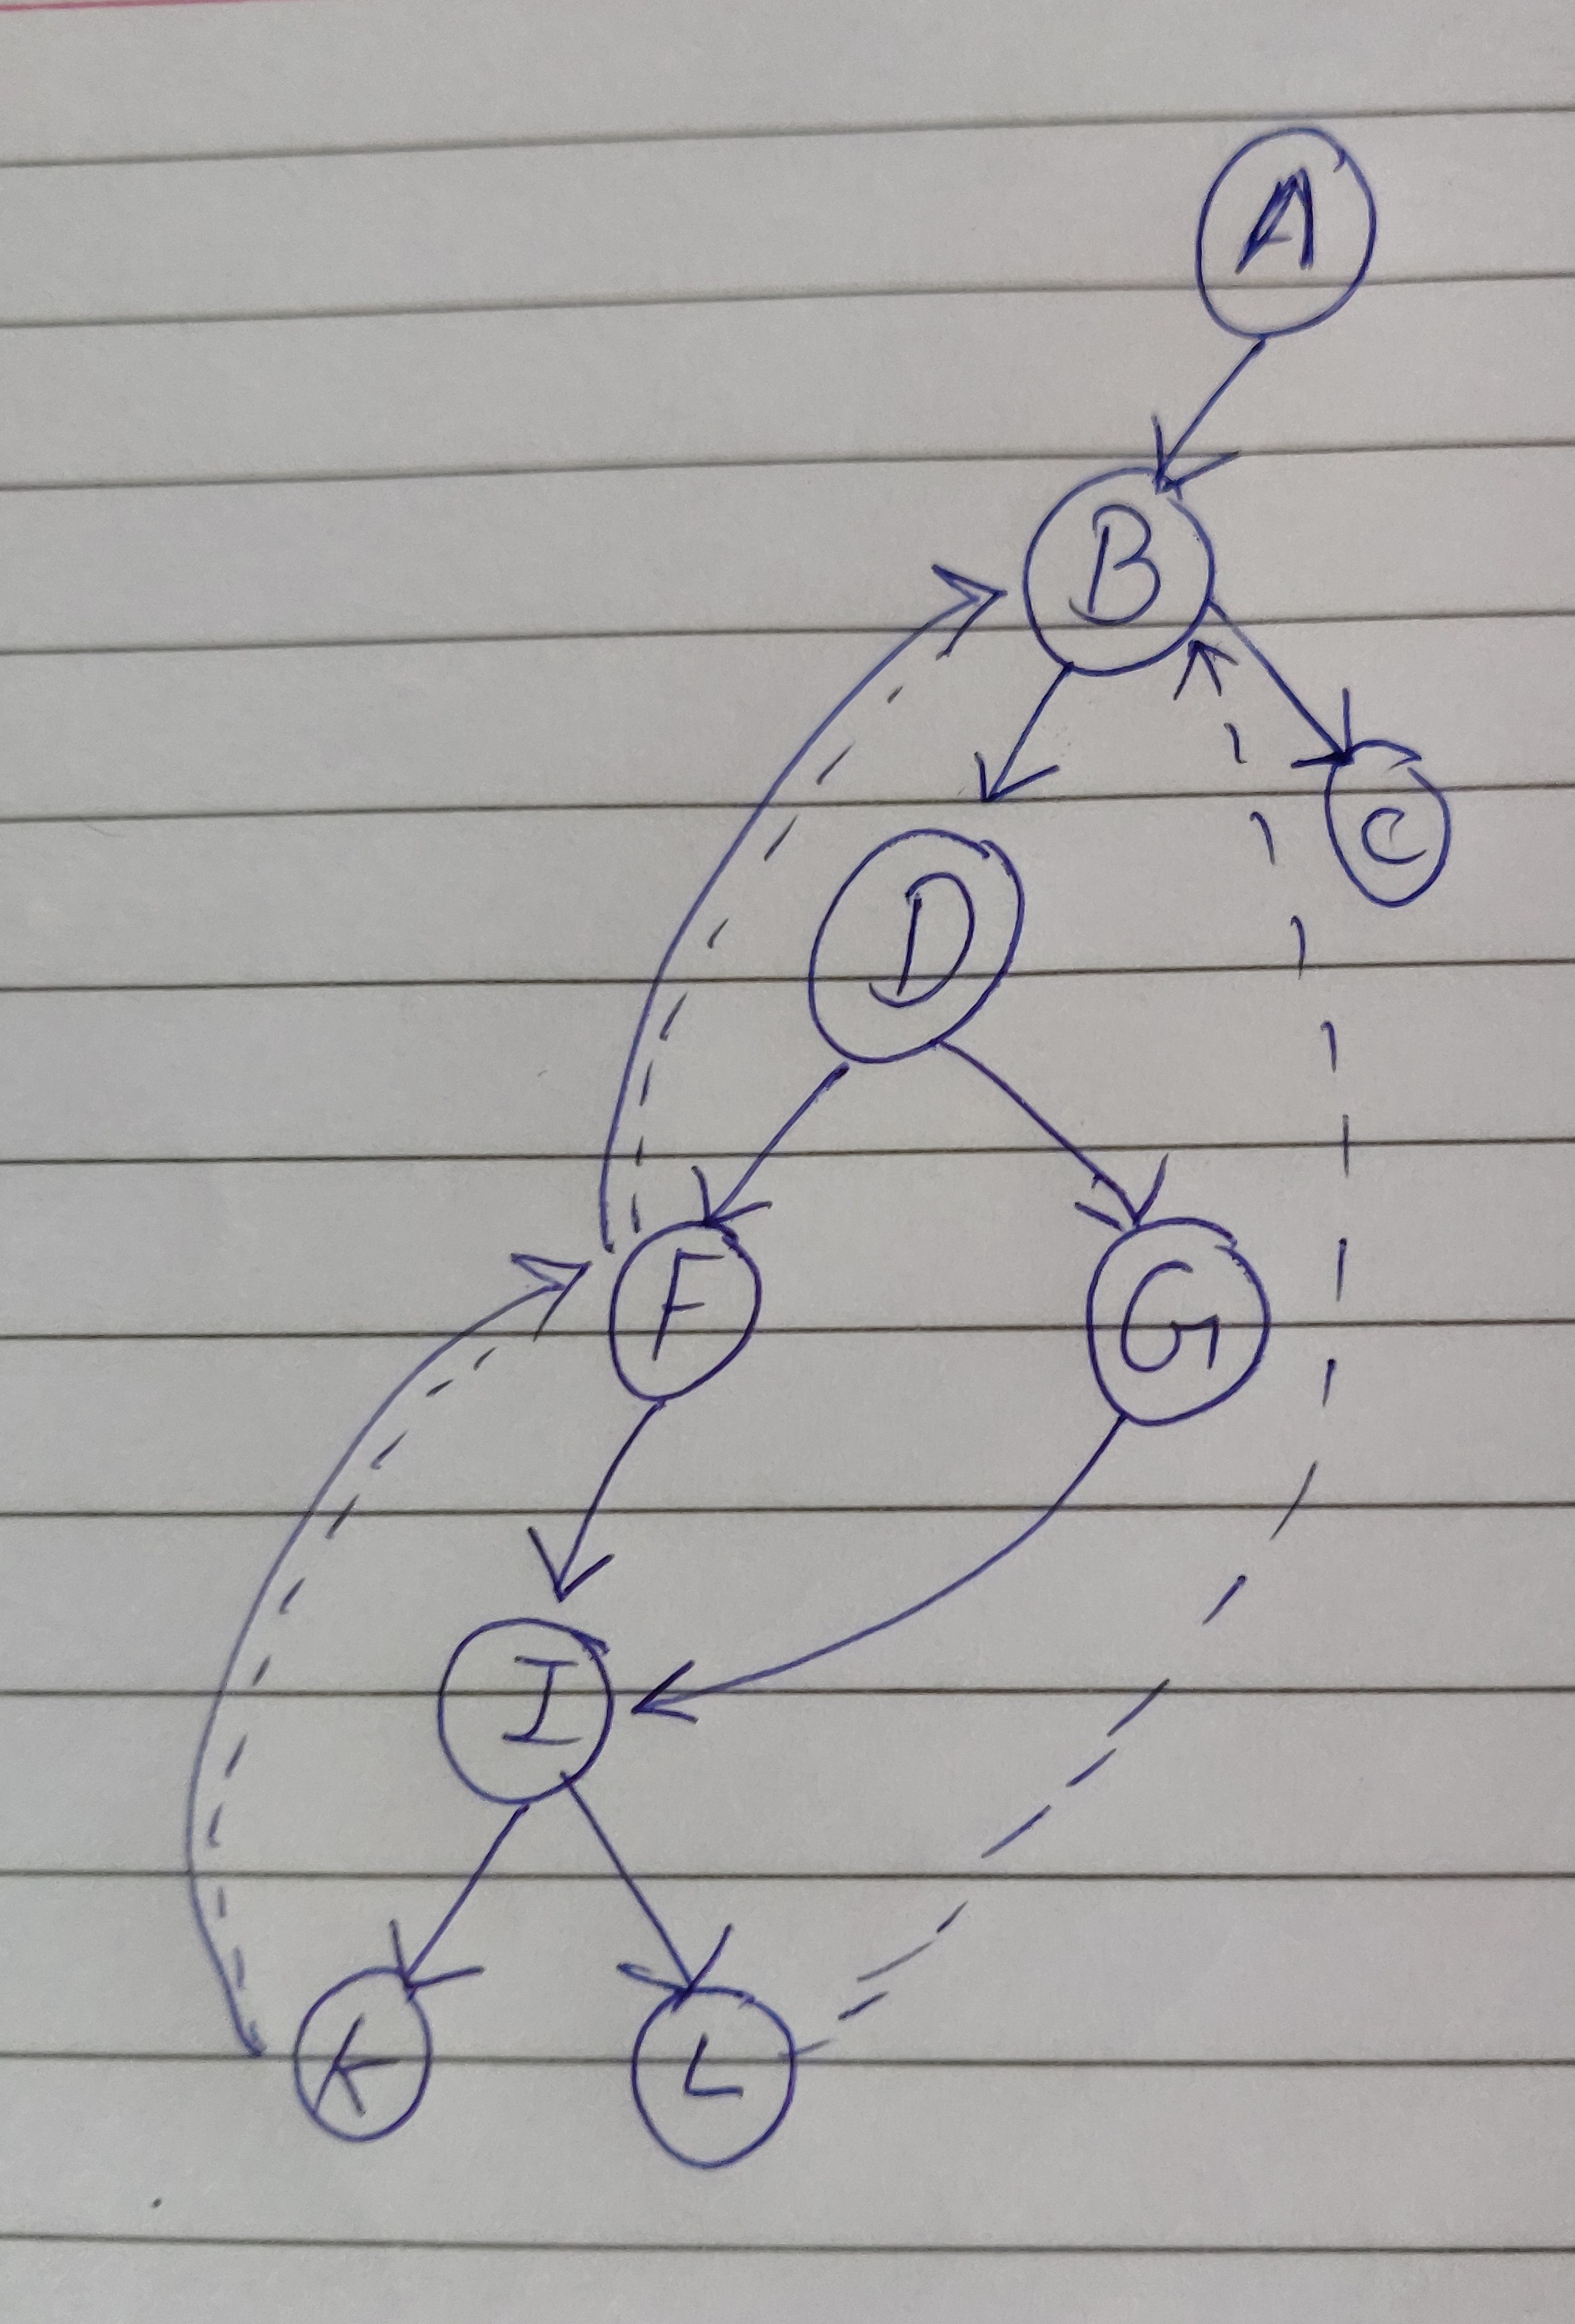 A
B
C
D
F
G
I
K
L